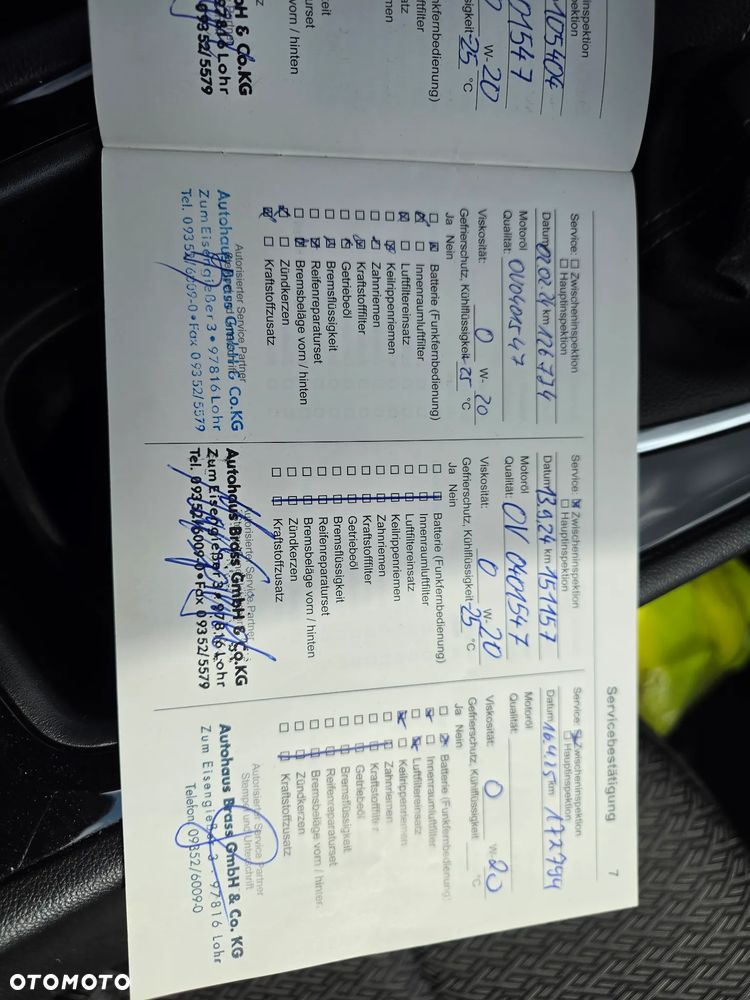 Servicebestätigung
7
Service: ☒ Zwischeninspektion
☐ Hauptinspektion
Datum 16.4.25 km 172794
Motoröl
Qualität:
Viskosität: 0 W-20
Gefrierschutz, Kühlflüssigkeit °C
Ja Nein
Batterie (Funkfernbedienung)
Innenraumluftfilter
Luftfiltereinsatz
Keilrippenriemen
Zahnriemen
Kraftstofffilter
Getriebeöl
Bremsflüssigkeit
Reifenreparaturset
Bremsbeläge vorn / hinten
Zündkerzen
Kraftstoffzusatz
Autorisierter Service Partner
Stempel und Unterschrift
Autohaus Brass GmbH & Co. KG
Zum Eisengießer 3 - 97816 Lohr
Telefon 09352/6009-0
Service: ☒ Zwischeninspektion
☐ Hauptinspektion
Datum 13.9.24 km 151157
Motoröl
Qualität: OV 0401547
Viskosität: 0 W-20
Gefrierschutz, Kühlflüssigkeit -25 °C
Ja Nein
Batterie (Funkfernbedienung)
Innenraumluftfilter
Luftfiltereinsatz
Keilrippenriemen
Zahnriemen
Kraftstofffilter
Getriebeöl
Bremsflüssigkeit
Reifenreparaturset
Bremsbeläge vorn / hinten
Zündkerzen
Kraftstoffzusatz
Autorisierter Service Partner
Autohaus Brass GmbH & Co.KG
Zum Eisengießer 3 • 97816 Lohr
Tel. 09352/6009-0 • Fax 09352/5579
Service: ☐ Zwischeninspektion
☐ Hauptinspektion
Datum km 126734
Motoröl
Qualität: OV0401547
Viskosität: 0 W-20
Gefrierschutz, Kühlflüssigkeit -25 °C
Ja Nein
Batterie (Funkfernbedienung)
Innenraumluftfilter
Luftfiltereinsatz
Keilrippenriemen
Zahnriemen
Kraftstofffilter
Getriebeöl
Bremsflüssigkeit
Reifenreparaturset
Bremsbeläge vorn / hinten
Zündkerzen
Kraftstoffzusatz
Autorisierter Service Partner
Autohaus Brass GmbH & Co.KG
Zum Eisengießer 3 • 97816 Lohr
Tel. 09352/6009-0 • Fax 09352/5579
ninspektion
pektion
105404
01547
W-20
sigkeit -25 °C
nkfernbedienung)
tfilter
vorn / hinten
bH & Co.KG
97816 Lohr
09352/5579
OTOMOTO